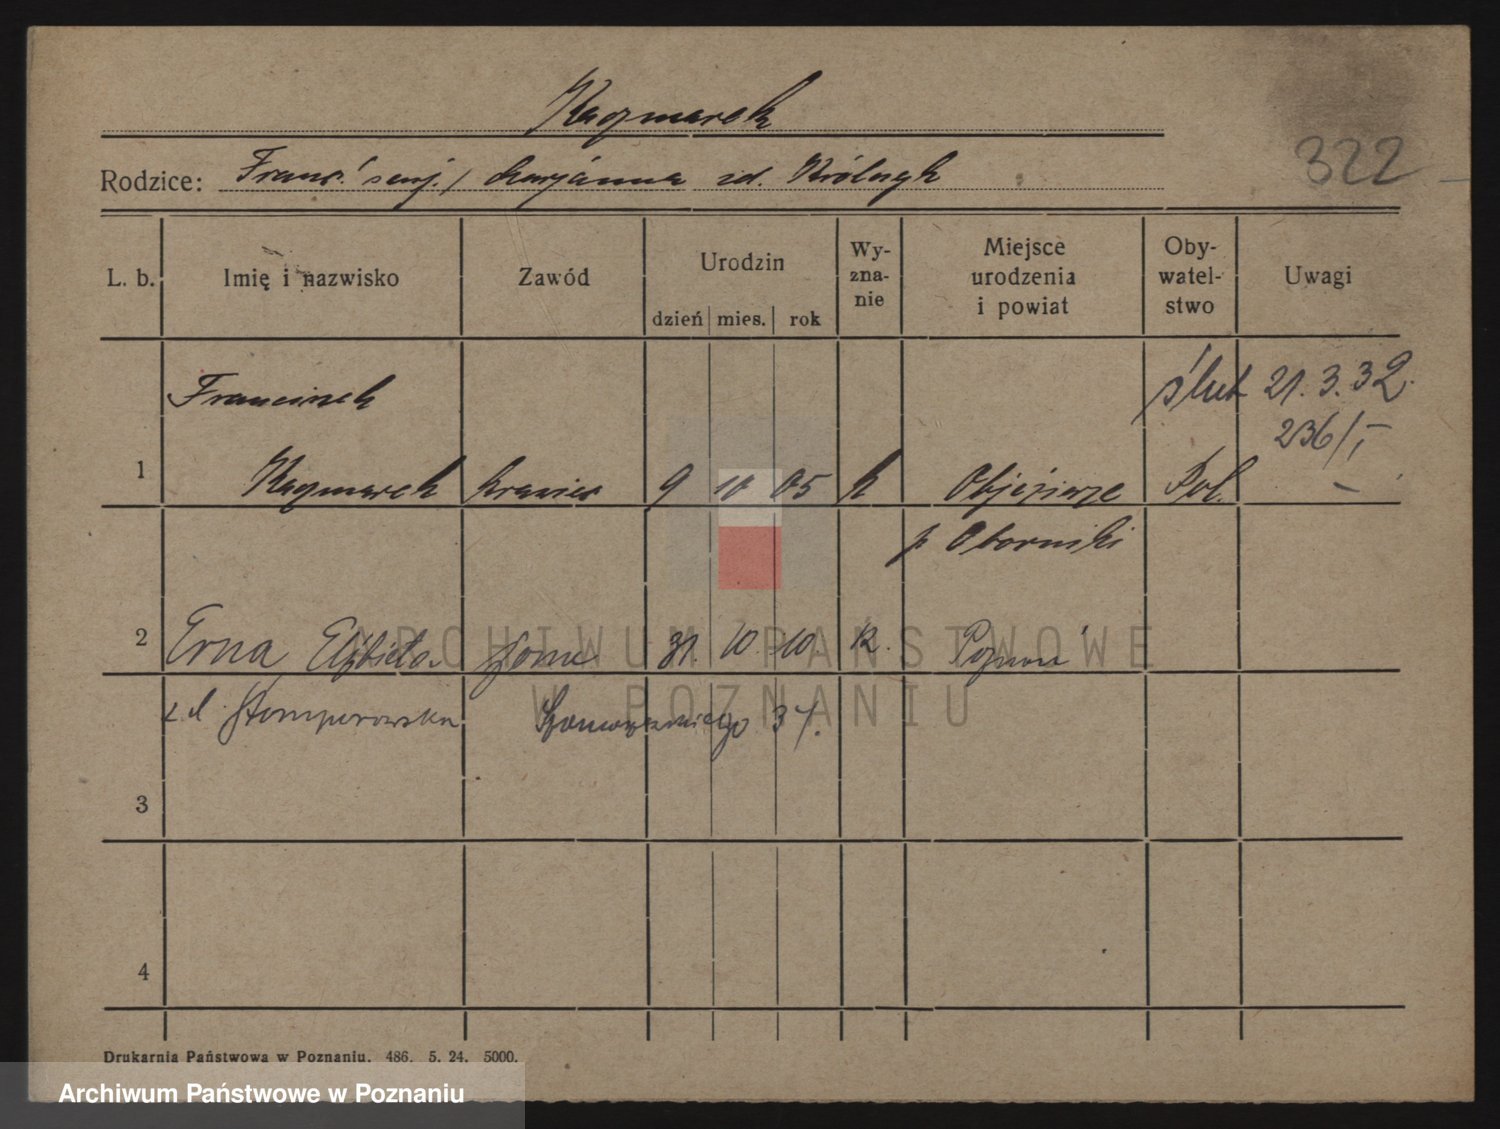 Kaczmarek
322
Rodzice: Franc. marj. / Marjanna zd. Królczyk
L. b. Imię i nazwisko Zawód Urodzin dzień mies. rok Wy-zna-nie Miejsce urodzenia i powiat Oby-watel-stwo Uwagi
ślub 21.3.32.
236/I
Franciszek
1 Kaczmarek krawiec 9 10 05 k Objezierze Pol. –
p Oborniki
2 Erna Elżbieta żona 31. 10. 10. k. Poznań
z d. Stamperowska 37.
3
4
Drukarnia Państwowa w Poznaniu. 486. 5. 24. 5000.
ARCHIWUM PAŃSTWOWE
W POZNANIU
Archiwum Państwowe w Poznaniu